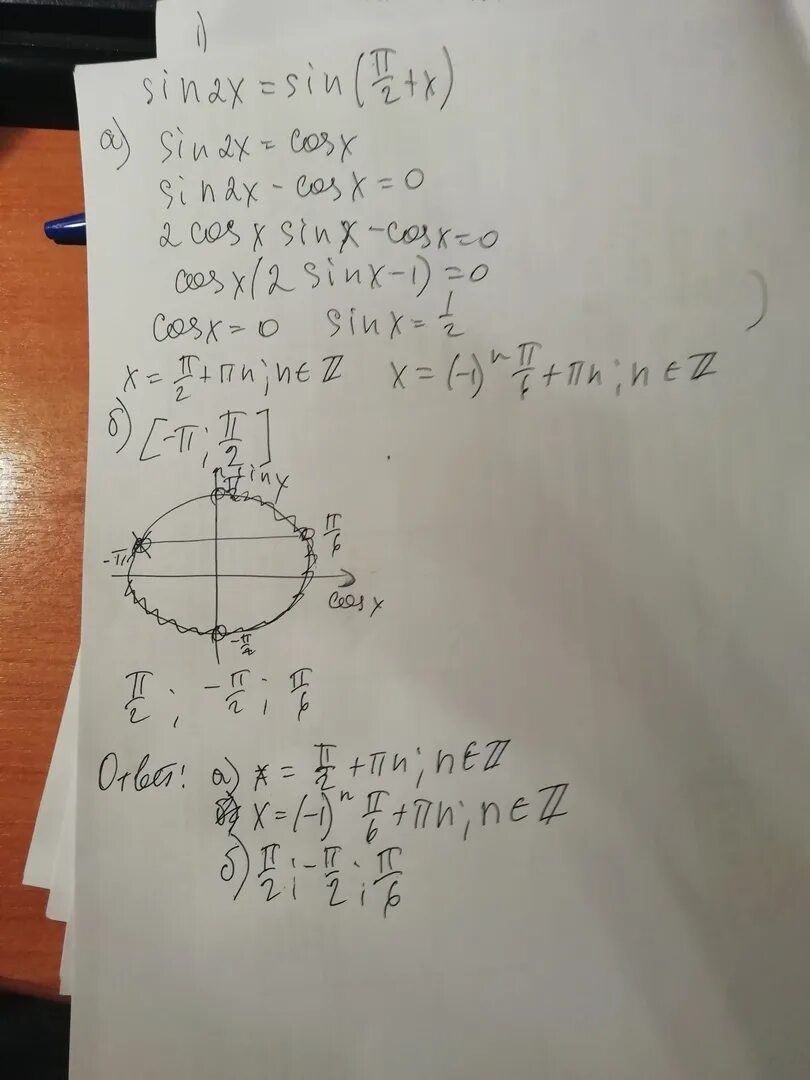 1)
sin2x = sin(π/2 + x)
а) sin2x = cosx
sin2x - cosx = 0
2cosx sinx - cosx = 0
cosx(2sinx - 1) = 0
cosx = 0 sinx = 1/2
x = π/2 + πn; n ∈ ℤ x = (-1)ⁿ π/6 + πn; n ∈ ℤ
б) [-π; π/2]
π/2
π/6
-π
cosx
-π/2
π/2 ; -π/2 ; π/6
Ответ: а) x = π/2 + πn; n ∈ ℤ
x = (-1)ⁿ π/6 + πn; n ∈ ℤ
б) π/2 ; -π/2 ; π/6